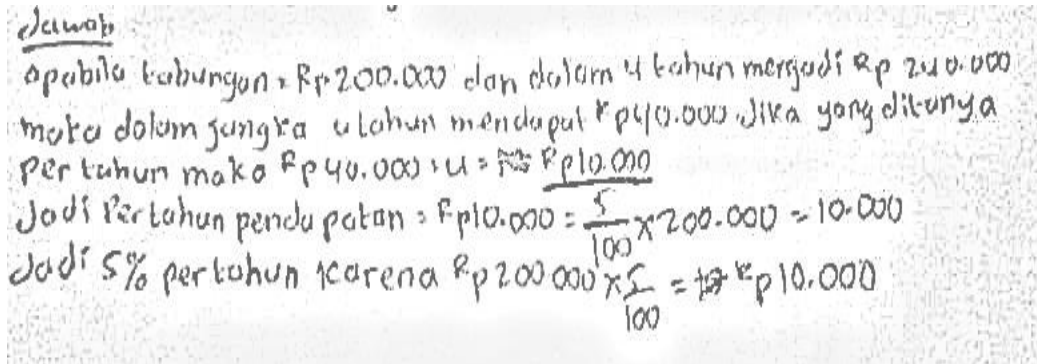 Jawab
apabila tabungan = Rp200.000 dan dalam 4 tahun menjadi Rp 240.000
maka dalam jangka 4 tahun mendapat Rp40.000. Jika yang ditanya
per tahun maka Rp40.000 : 4 = Rp10.000
Jadi Pertahun pendapatan = Rp10.000 = 5/100 x 200.000 = 10.000
Jadi 5% pertahun karena Rp200.000 x 5/100 = Rp10.000